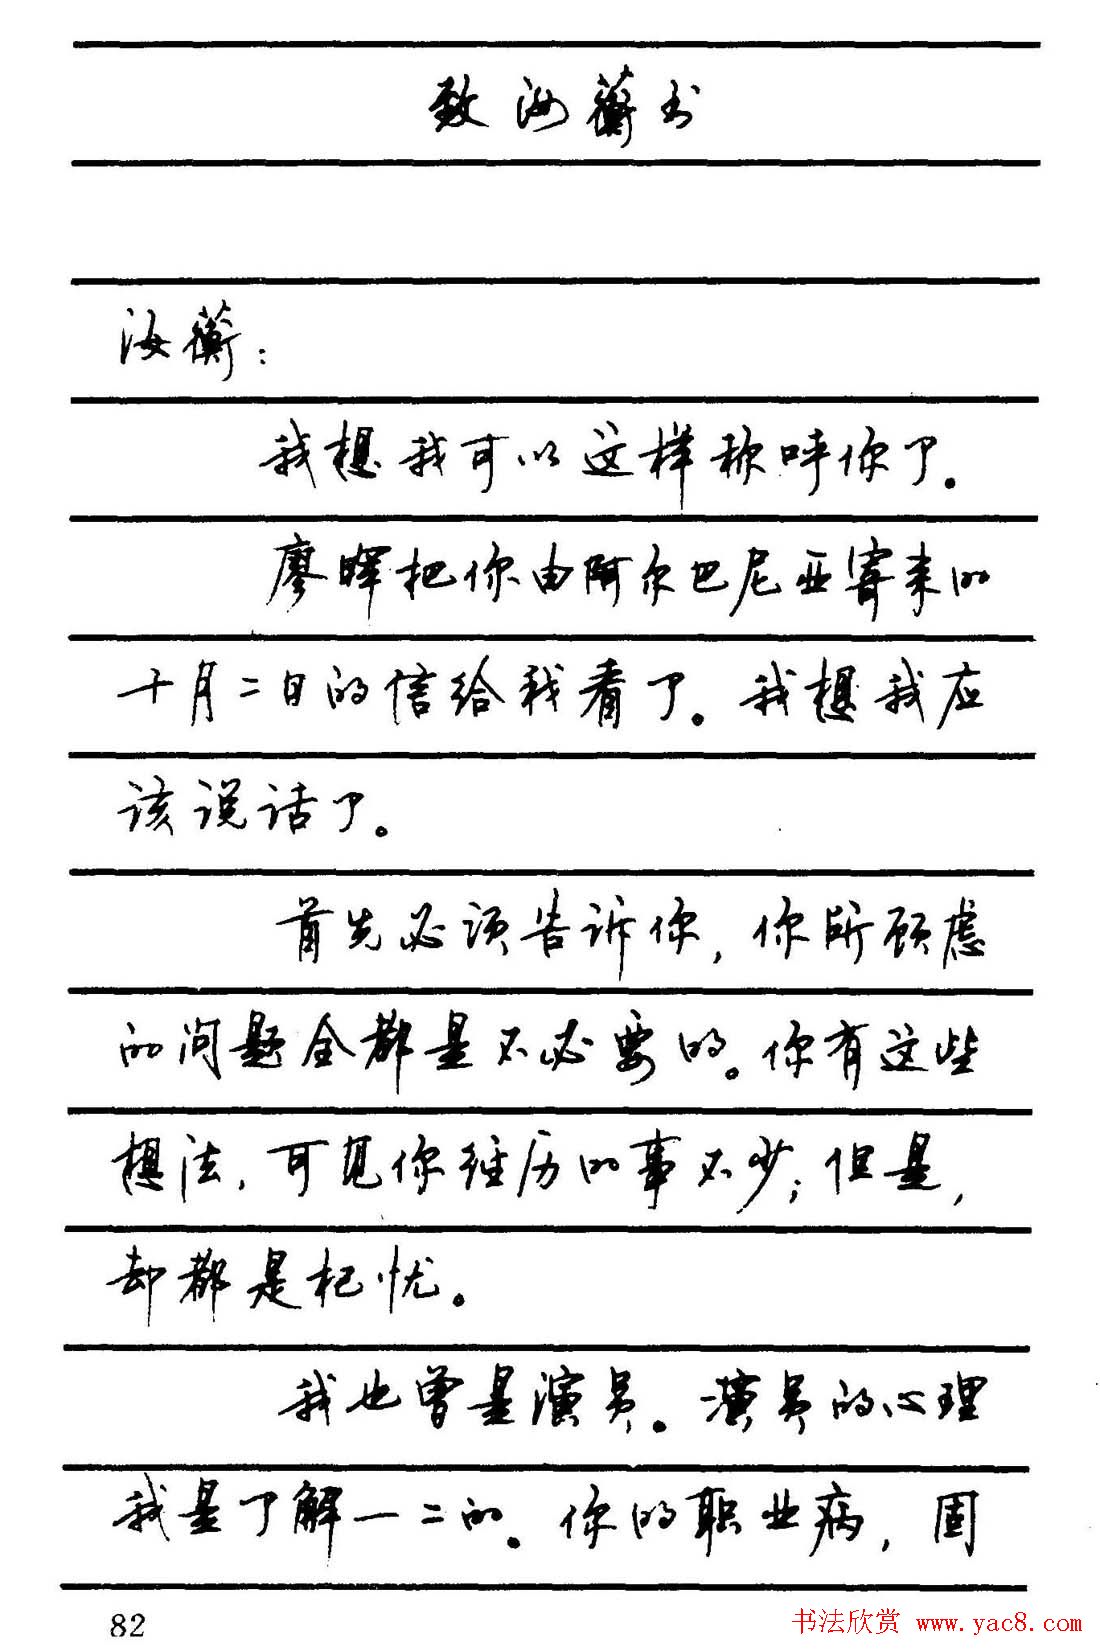 致汝蘅书
汝蘅：
我想我可以这样称呼你了。
廖晖把你由阿尔巴尼亚寄来的
十月二日的信给我看了。我想我应
该说话了。
首先必须告诉你，你所顾虑
的问题全都是不必要的。你有这些
想法，可见你经历的事不少；但是，
却都是杞忧。
我也曾是演员。演员的心理
我是了解一二的。你的职业病，固
82
书法欣赏 www.yac8.com